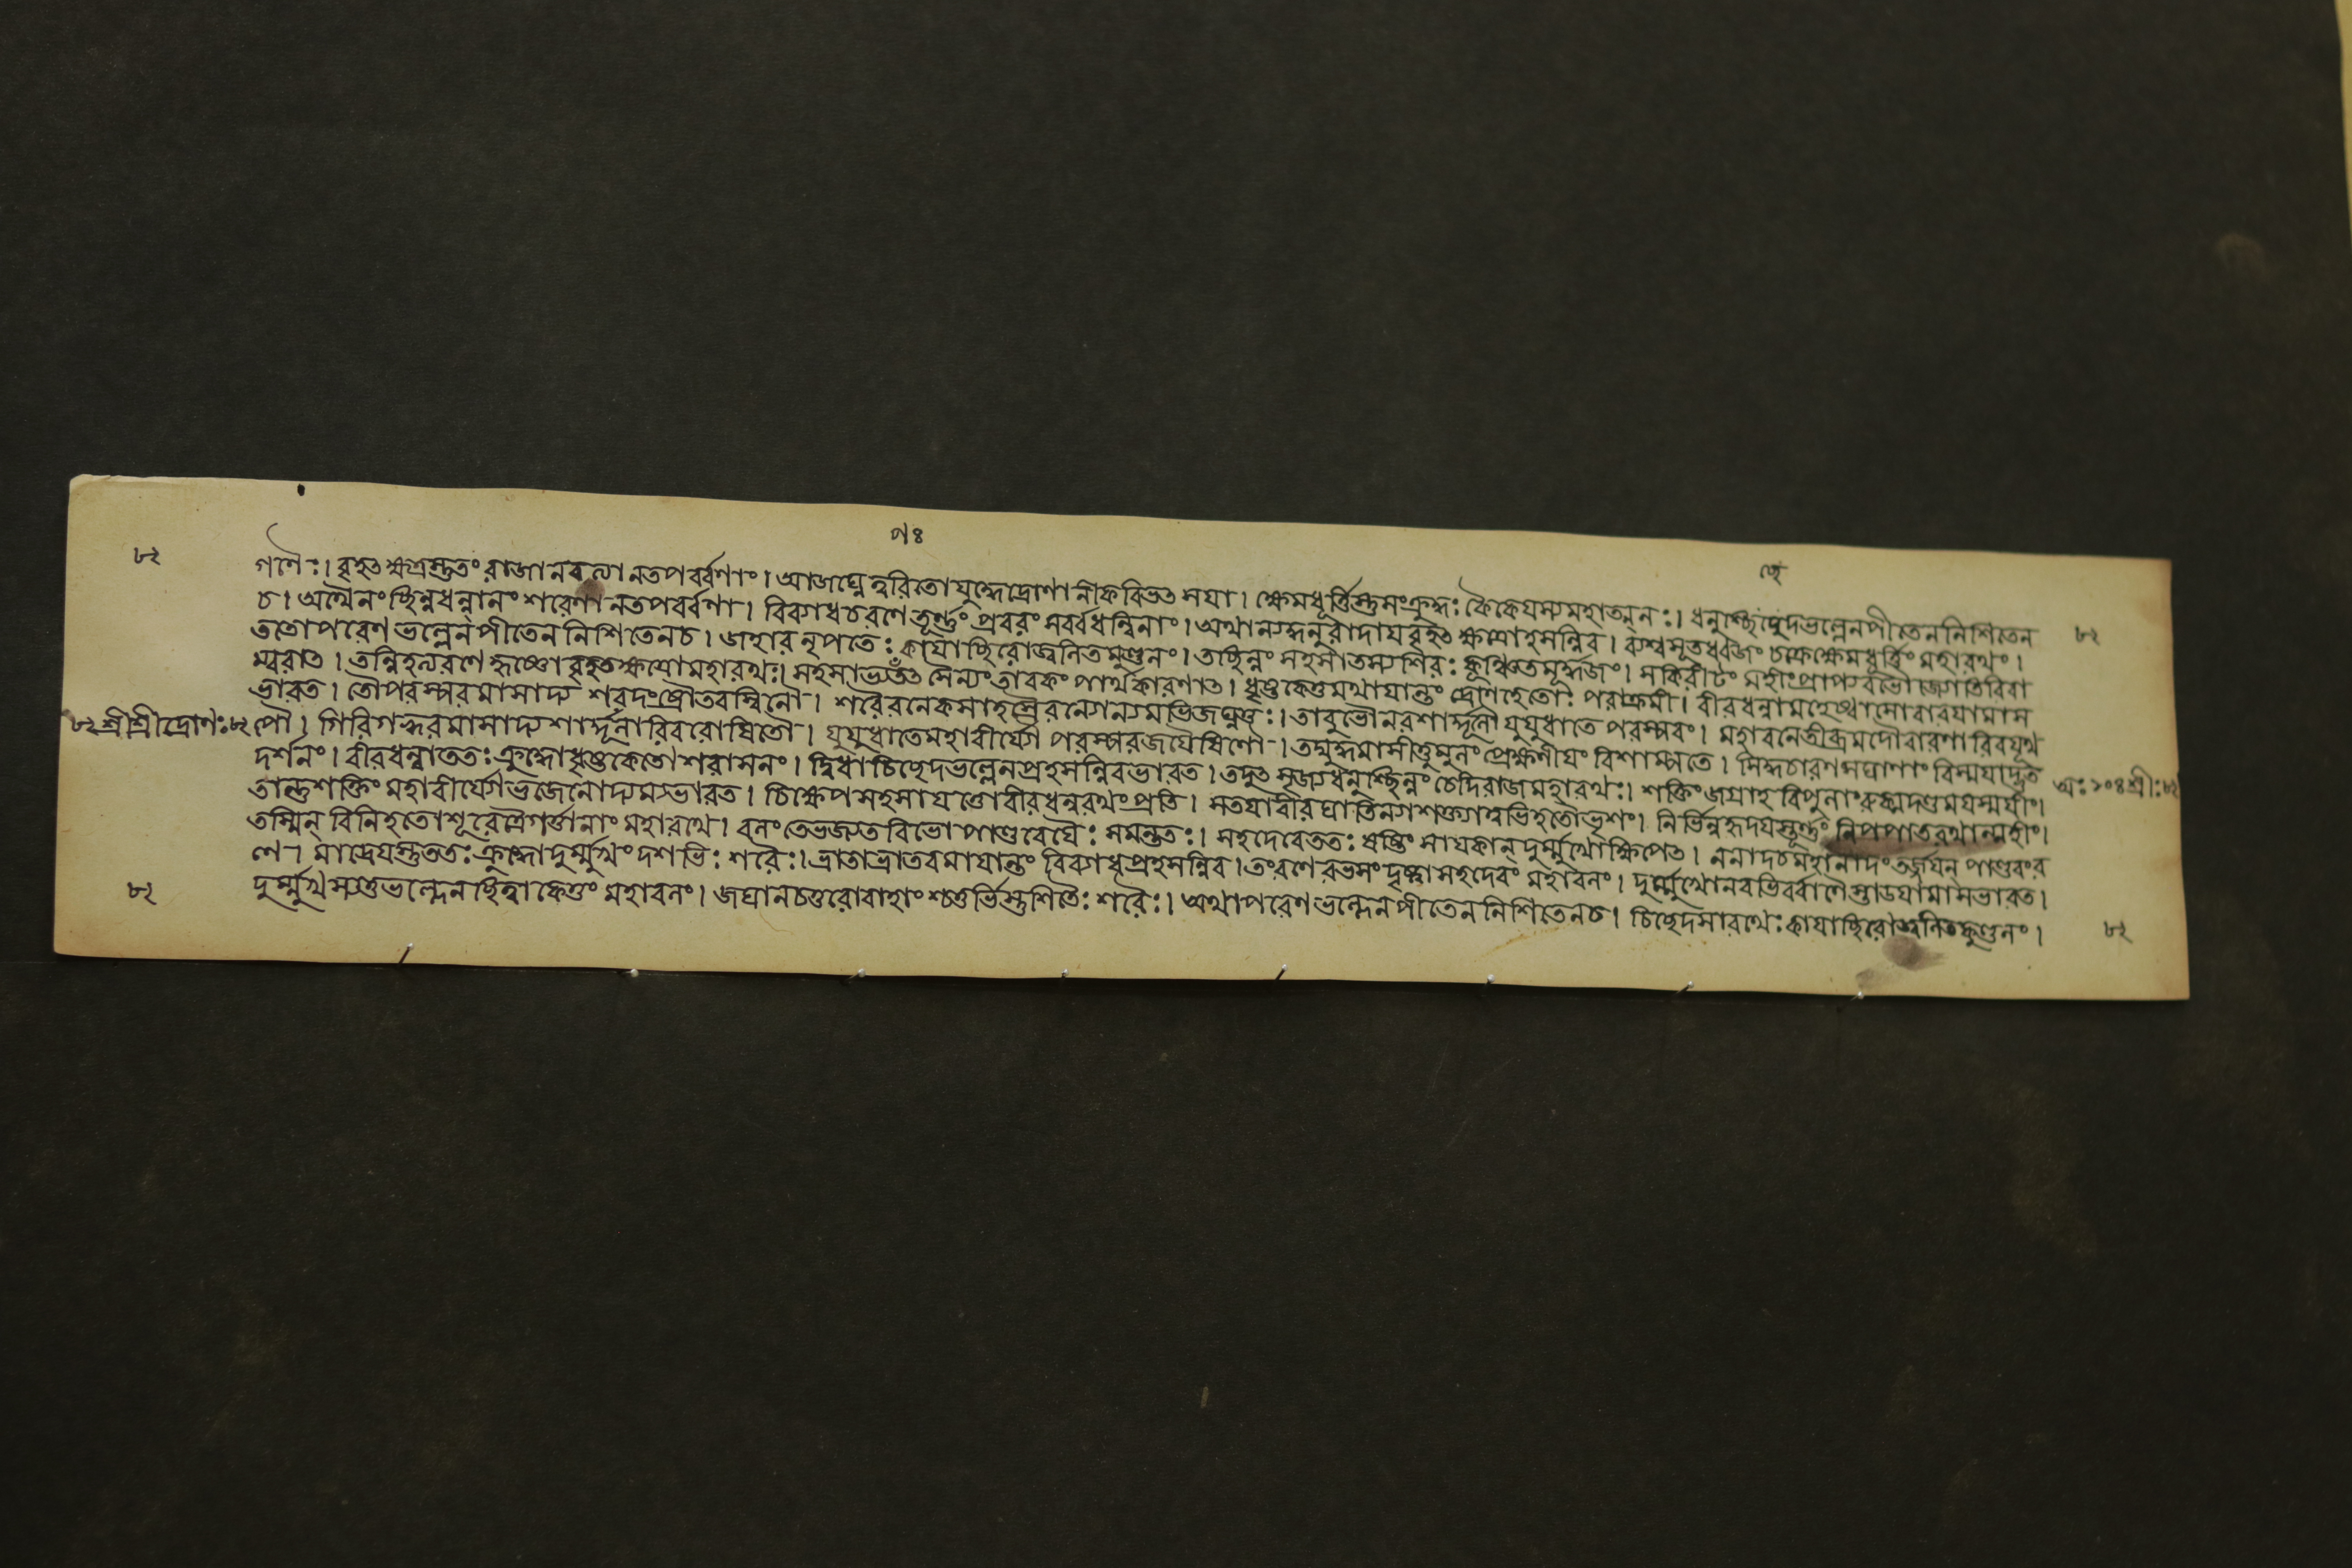 ৭৪
৮২ গণৈঃ। বৃহৎক্ষত্রস্তুতং রাজা নবত্যা নতপর্ব্বণাং। আজঘ্নে ত্বরিতো যুদ্ধে দ্রোণানীকবিভৎসযা। ক্ষেমধূর্ত্তিস্তু সংক্রুদ্ধঃ কৈকেযস্য মহাত্মনঃ। ধনুশ্চিচ্ছেদ ভল্লেন পীতেন নিশিতেন ৮২
চ। অথৈনং ছিন্নধন্বানং শরেণানতপর্ব্বণা। বিব্যাধ চরণে তূর্ণ্ণং প্রবরং সর্ব্বধন্বিনাং। অথান্যদ্ধনুরাদায বৃহৎক্ষত্রো হসন্নিব। ব্যশ্বসূতধ্বজং চক্রে ক্ষেমধূর্ত্তিং মহারথং।
ততোপরেণ ভল্লেন পীতেন নিশিতেন চ। জহার নৃপতেঃ কাযাচ্ছিরো জ্বলিতকুণ্ডলং। তচ্ছিন্নং সহসা তস্য শিরঃ কুঞ্চিতমূর্দ্ধজং। সকিরীটং মহীং প্রাপ্য বভৌ জ্যোতিরিবা
ম্বরাৎ। তন্নিহত্য রণে হৃষ্টো বৃহৎক্ষত্রো মহারথঃ। সহসাভ্যপতৎ সৈন্যং তাবকং পার্থকারণাৎ। ধৃষ্টকেতুমথাযান্তং দ্রোণহেতোঃ পরাক্রমী। বীরধন্বা মহেষ্বাসো বারযামাস
ভারত। তৌ পরস্পরমাসাদ্য শরদংষ্ট্রৌ তরস্বিনৌ। শরৈরনেকসাহস্রৈরন্যোন্যমভিজঘ্নতুঃ। তাবুভৌ নরশার্দ্দূলৌ যুযুধাতে পরস্পরং। মহাবনে তীব্রমদৌ বারণাবিব যূথ
৮২ শ্রীশ্রীদ্রোণঃ ৮২ পৌ। গিরিগহ্বরমাসাদ্য শার্দ্দূলাবিব রোষিতৌ। যুযুধাতে মহাবীর্য্যৌ পরস্পরজযৈষিণৌ। তদ্যুদ্ধমাসীত্তুমুলং প্রেক্ষণীযং বিশাম্পতে। সিদ্ধচারণসঘাণাং বিস্মযাদ্ভুত অঃ ১০৪ শ্রীঃ ৮২
দর্শনং। বীরধন্বা ততঃ ক্রুদ্ধো ধৃষ্টকেতোঃ শরাসনং। দ্বিধা চিচ্ছেদ ভল্লেন প্রহসন্নিব ভারত। তদুৎসৃজ্য ধনুশ্ছিন্নং চেদিরাজ মহারথঃ। শক্তিং জগ্রাহ বিপুলাং রুক্মদণ্ডমযস্মযীং।
তান্তু শক্তিং মহাবীর্য্যো ভুজেনোদ্যম্য ভারত। চিক্ষেপ সহসা যত্তো বীরধন্বরথং প্রতি। স তযা বীরঘাতিন্যা শক্ত্যা ত্বভিহতো ভৃশং। নির্ভিন্নহৃদযস্তূর্ণ্ণং নিপপাত রথান্মহীং।
তস্মিন্ বিনিহতে শূরে ত্রৈগর্ত্তানাং মহারথে। বলং তেভজ্যত বিভো পাণ্ডবেযৈঃ সমন্ততঃ। সহদেবে ততঃ ষষ্টিং সাযকান্ দুর্ম্মুখোক্ষিপৎ। ননাদ চ মহানাদং তর্জ্জযন্ পাণ্ডবং র
ণে। মাদ্রেযস্তু ততঃ ক্রুদ্ধো দুর্ম্মুখং দশভিঃ শরৈঃ। ভ্রাতা ভ্রাতরমাযান্তং বিব্যাধ প্রহসন্নিব। তং রণে রভসং দৃষ্ট্বা সহদেবং মহাবলং। দুর্ম্মুখো নবভির্ব্বাণৈস্তাডযামাস ভারত।
৮২ দুর্ম্মুখস্য তু ভল্লেন ছিত্বা কেতুং মহাবলং। জঘান চতুরো বাহাংশ্চতুর্ভিস্তু শিতৈঃ শরৈঃ। অথাপরেণ ভল্লেন পীতেন নিশিতেন চ। চিচ্ছেদ সারথেঃ কাযাচ্ছিরো জ্বলিতকুণ্ডলং। ৮২